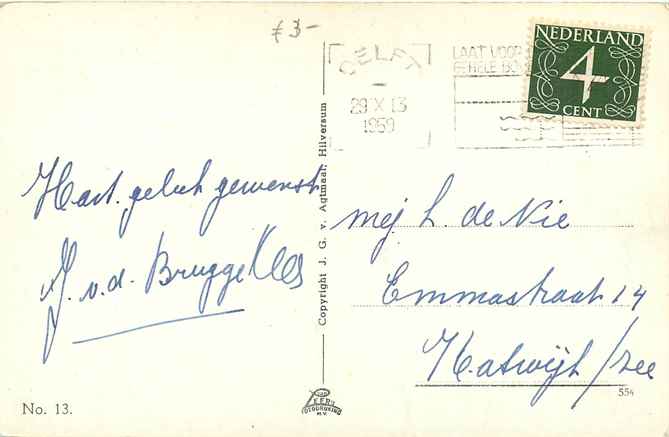 £ 3-
DELFT
29 X 13
1959
LAAT VOOR
GEHELE
NEDERLAND
4
CENT
Hart. geluk gewenst
J. v.d. Brugge Klees
Copyright J. G. v. Agtmaal: Hilversum
mej L. de Nie
Emmastraat 14
Katwijk/zee
No. 13.
554